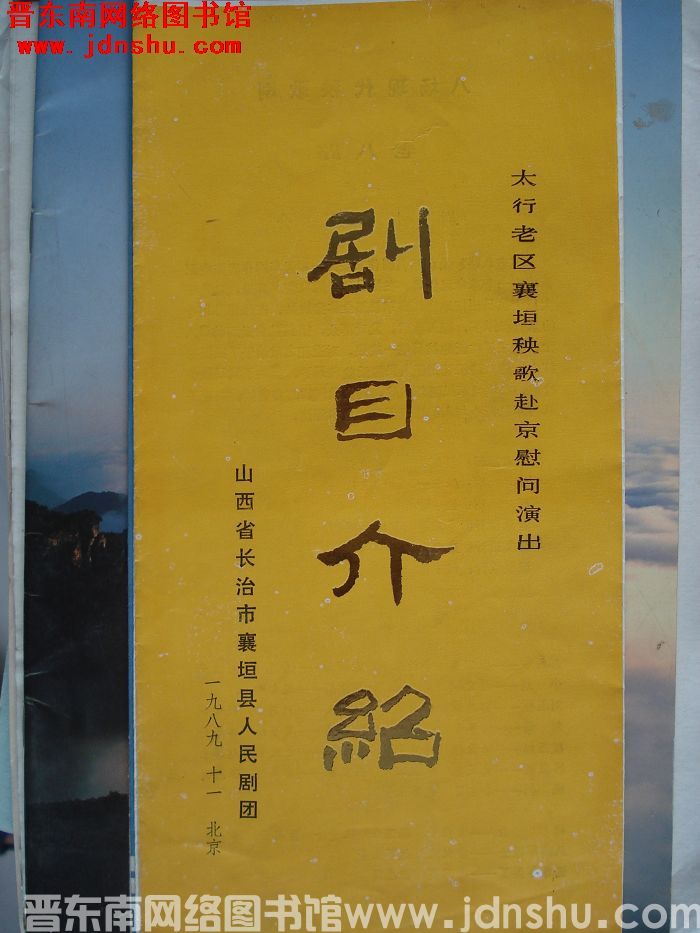 晋东南网络图书馆
www.jdnshu.com
太行老区襄垣秧歌赴京慰问演出
剧目介紹
山西省长治市襄垣县人民剧团
一九八九 十一 北京
晋东南网络图书馆www.jdnshu.com